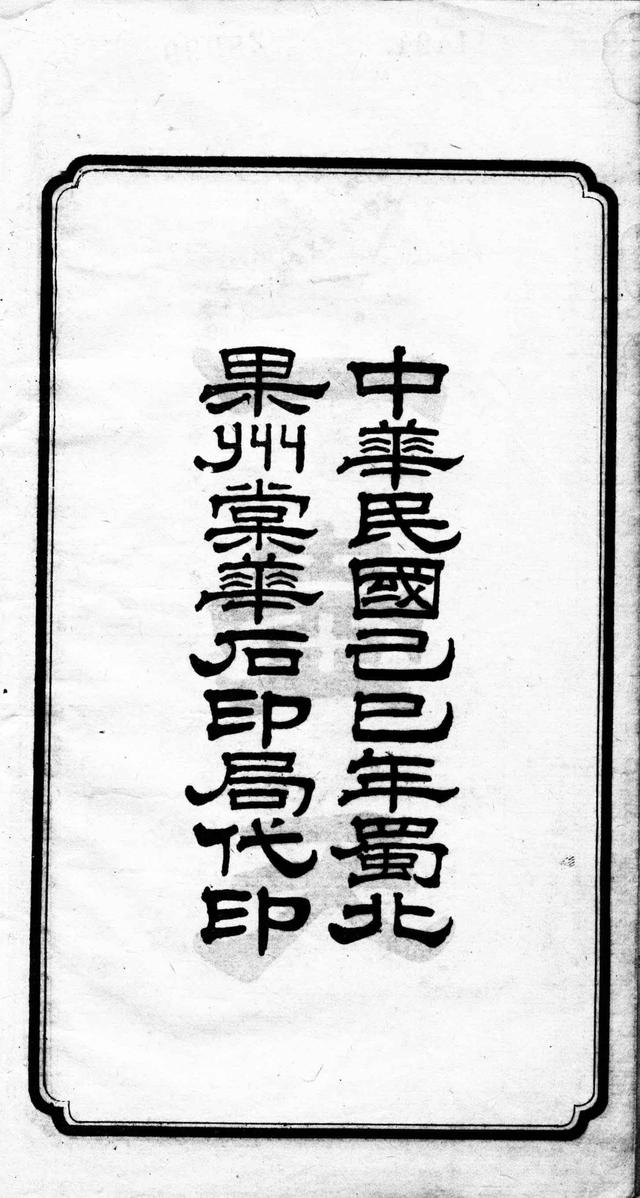 中華民國己巳年蜀北
果州棠華石印局代印